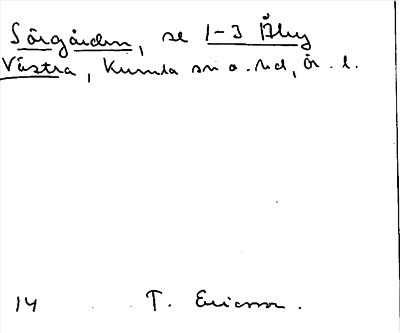 Sörgården, se 1-3 Åby
Västra, Kumla sn o. hd, Ör. l.
14 T. Ericsson.